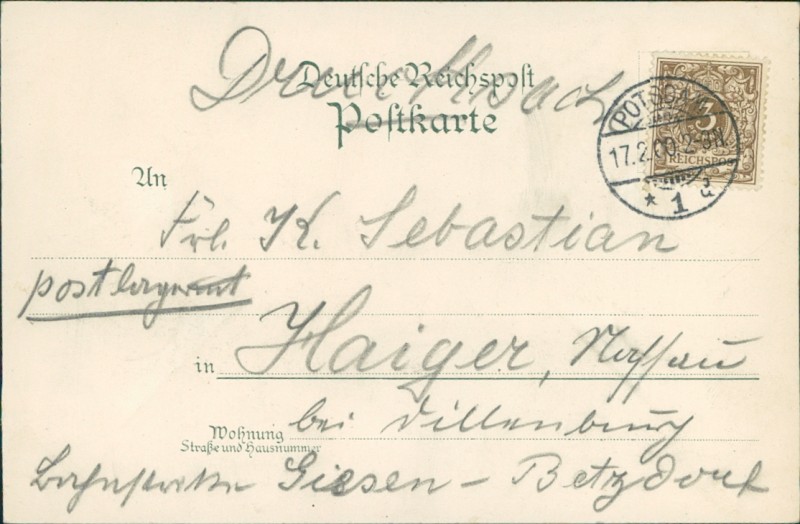 Drucksach
Deutsche Reichspost
Postkarte
3
REICHSPOST
POTSDAM
17.2.00. 2-3N.
* 1 a
An
Frl. K. Sebastian
postlagernd
in Haiger, Nassau
bei Dillenburg
Wohnung
Straße und Hausnummer
Bahnstrecke Giesen – Betzdorf